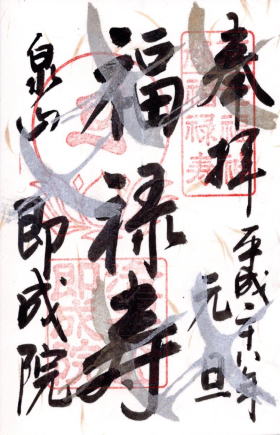 奉拝
平成二十八年
元旦
福禄寿
泉山
即成院